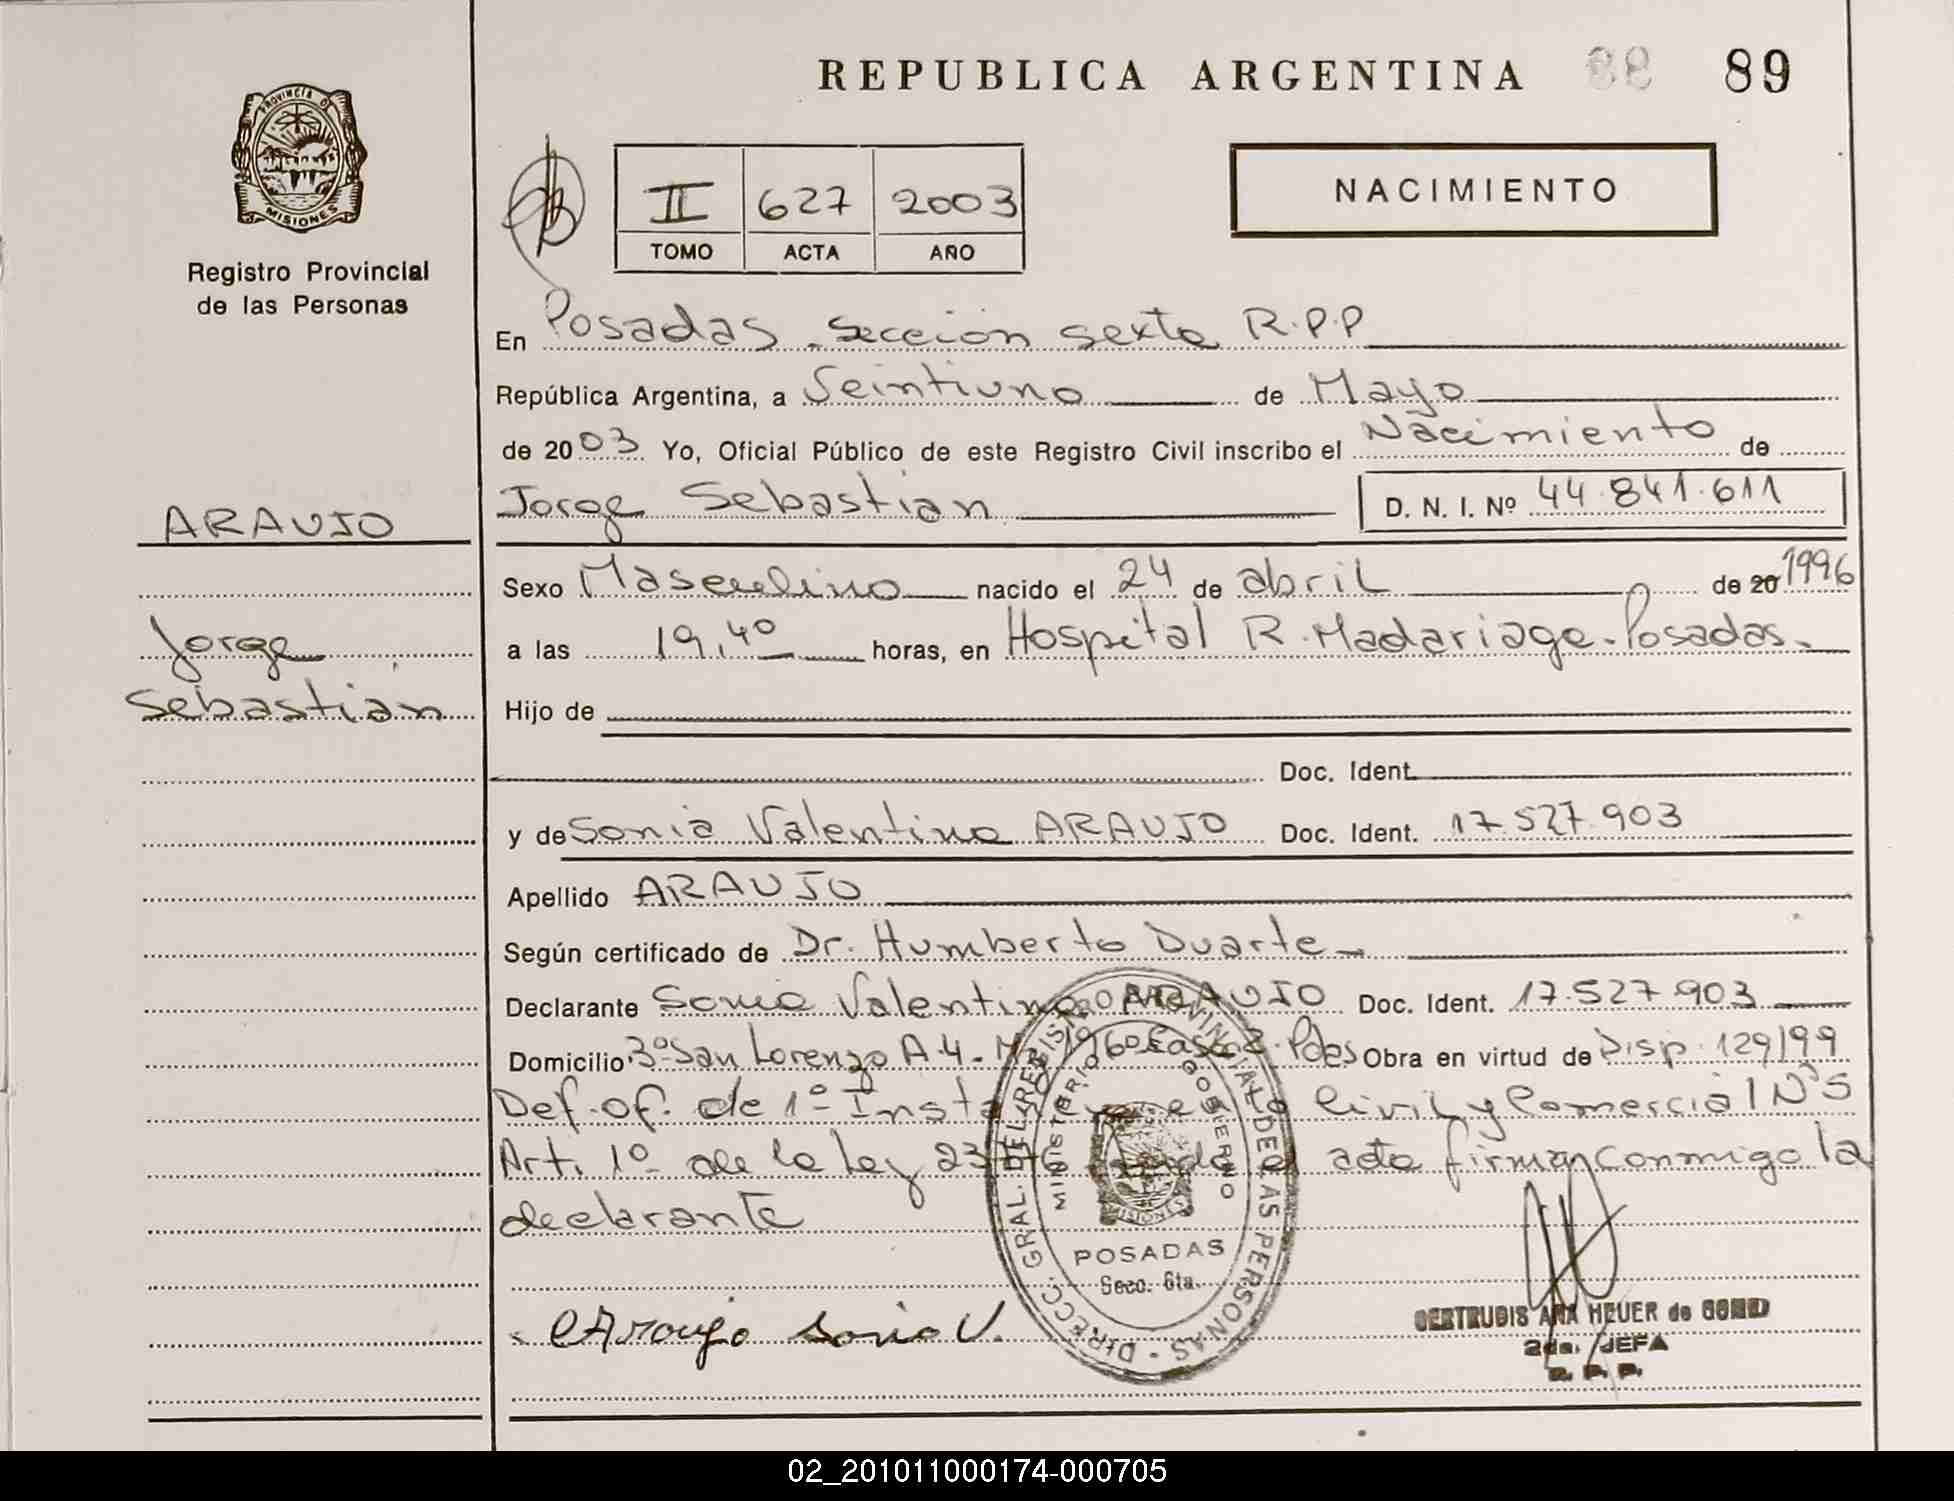 REPUBLICA ARGENTINA 88 89
PROVINCIA DE
MISIONES
Registro Provincial
de las Personas
II 627 2003
TOMO ACTA AÑO
NACIMIENTO
En Posadas. Sección sexta R.P.P
República Argentina, a Veintiuno de Mayo
de 2003 Yo, Oficial Público de este Registro Civil inscribo el Nacimiento de
Jorge Sebastian D. N. I. Nº 44.841.611
ARAUJO
Jorge
Sebastián
Sexo Masculino nacido el 24 de abril de 20 1996
a las 19,40 horas, en Hospital R. Madariaga - Posadas.
Hijo de
Doc. Ident.
y de Sonia Valentina ARAUJO Doc. Ident. 17.527.903
Apellido ARAUJO
Según certificado de Dr. Humberto Duarte
Declarante Sonia Valentina ARAUJO Doc. Ident. 17.527.903
Domicilio Bº San Lorenzo A.4. Casa Pdas Obra en virtud de Disp. 129/99
Def. of. de 1º Inst. Civil y Comercial Nº 5
Art. 1º de la Ley el acta firman conmigo la
declarante
DIRECC. GRAL. DEL REGISTRO PROVINCIAL DE LAS PERSONAS
MINISTERIO GOBIERNO
MISIONES
POSADAS
Secc. 6ta.
Araujo Sonia V.
GERTRUDIS ANA HEUER de
2da. JEFA
R. P. P.
02_201011000174-000705